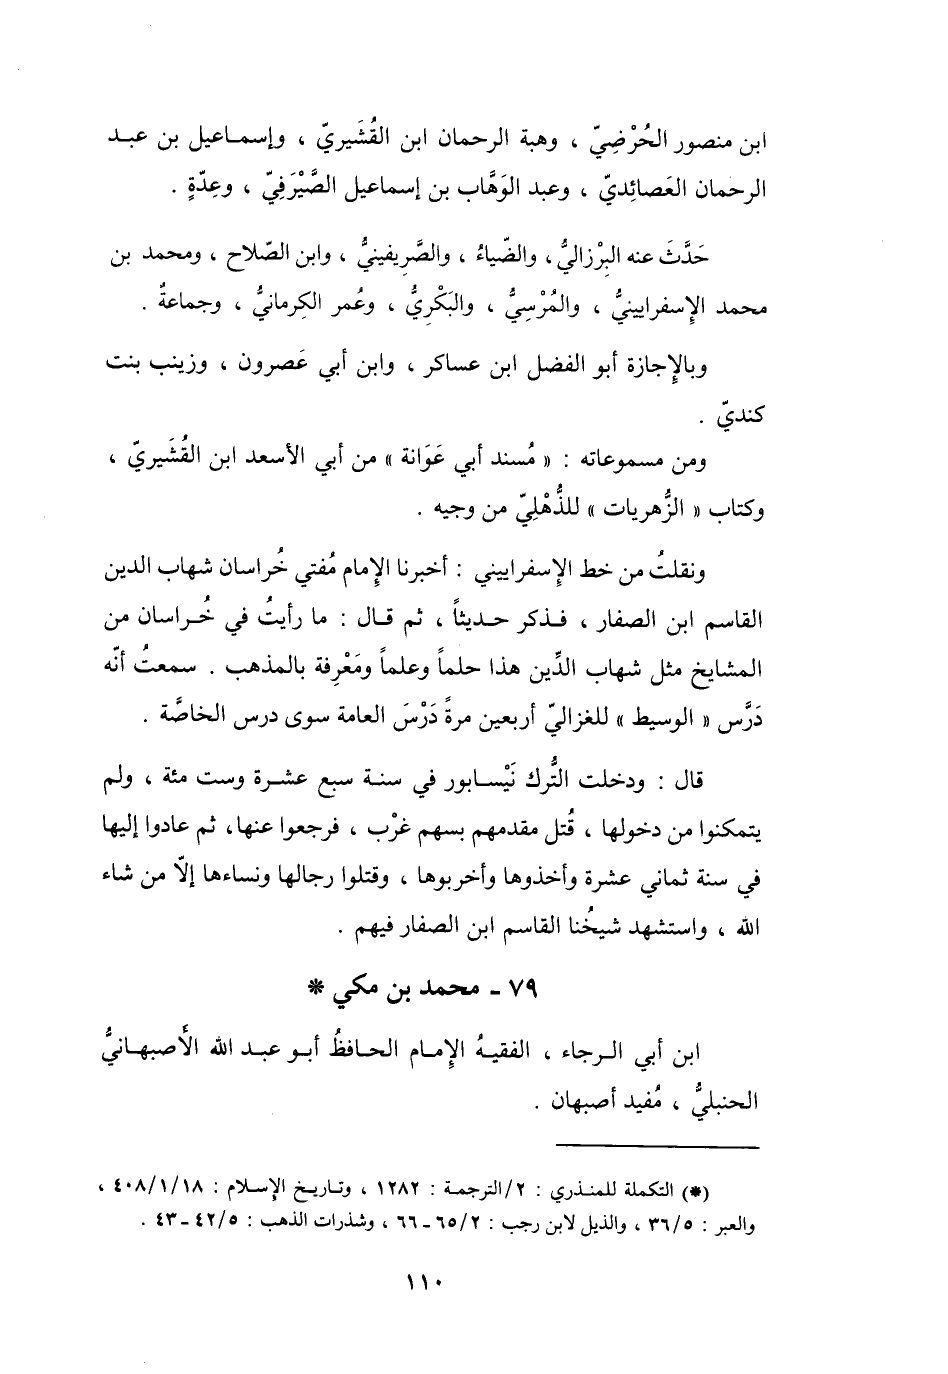 ابن منصور الحُرْضِيّ ، وهبة الرحمان ابن القُشَيريّ ، وإسماعيل بن عبد
الرحمان العَصائِديّ ، وعبد الوَهَّاب بن إسماعيل الصَّيْرَفِيّ ، وعِدّةٍ .
حَدَّثَ عنه البِرْزاليُّ ، والضّياءُ ، والصَّرِيفينيُّ ، وابن الصّلاح ، ومحمد بن
محمد الإِسفرايينيُّ ، والمُرْسِيُّ ، والبَكْرِيُّ ، وعُمر الكِرمانيُّ ، وجماعةٌ .
وبالإِجازة أبو الفضل ابن عساكر ، وابن أبي عَصرون ، وزينب بنت
كنديّ .
ومن مسموعاته : « مُسند أبي عَوَانة » من أبي الأسعد ابن القُشَيريّ ،
وكتاب « الزُّهريات » للذُّهْلِيّ من وجيه .
ونقلتُ من خط الإِسفراييني : أخبرنا الإِمام مُفتي خُراسان شهاب الدين
القاسم ابن الصفار ، فذكر حديثاً ، ثم قال : ما رأيتُ في خُراسان من
المشايخ مثل شهاب الدِّين هذا حلماً وعلماً ومَعْرِفة بالمذهب . سمعتُ أنّه
دَرَّس « الوسيط » للغزاليّ أربعين مرةً دَرْسَ العامة سوى درس الخاصَّة .
قال : ودخلت التُّرك نَيْسابور في سنة سبع عشرة وست مئة ، ولم
يتمكنوا من دخولها ، قُتل مقدمهم بسهم غرْب ، فرجعوا عنها، ثم عادوا إليها
في سنة ثماني عشرة وأخذوها وأخربوها ، وقتلوا رجالها ونساءها إلاّ من شاء
الله ، واستشهد شيخُنا القاسم ابن الصفار فيهم .
٧٩ - محمد بن مكي *
ابن أبي الرجاء ، الفقيهُ الإِمام الحافظُ أبو عبد الله الأَصبهانيُّ
الحنبليُّ ، مُفيد أصبهان .
(*) التكملة للمنذري : ٢/الترجمة : ١٢٨٢ ، وتاريخ الإِسلام : ٤٠٨/١/١٨ ،
والعبر : ٣٦/٥ ، والذيل لابن رجب : ٦٥/٢ـ ٦٦ ، وشذرات الذهب : ٤٢/٥ـ ٤٣ .
١١٠